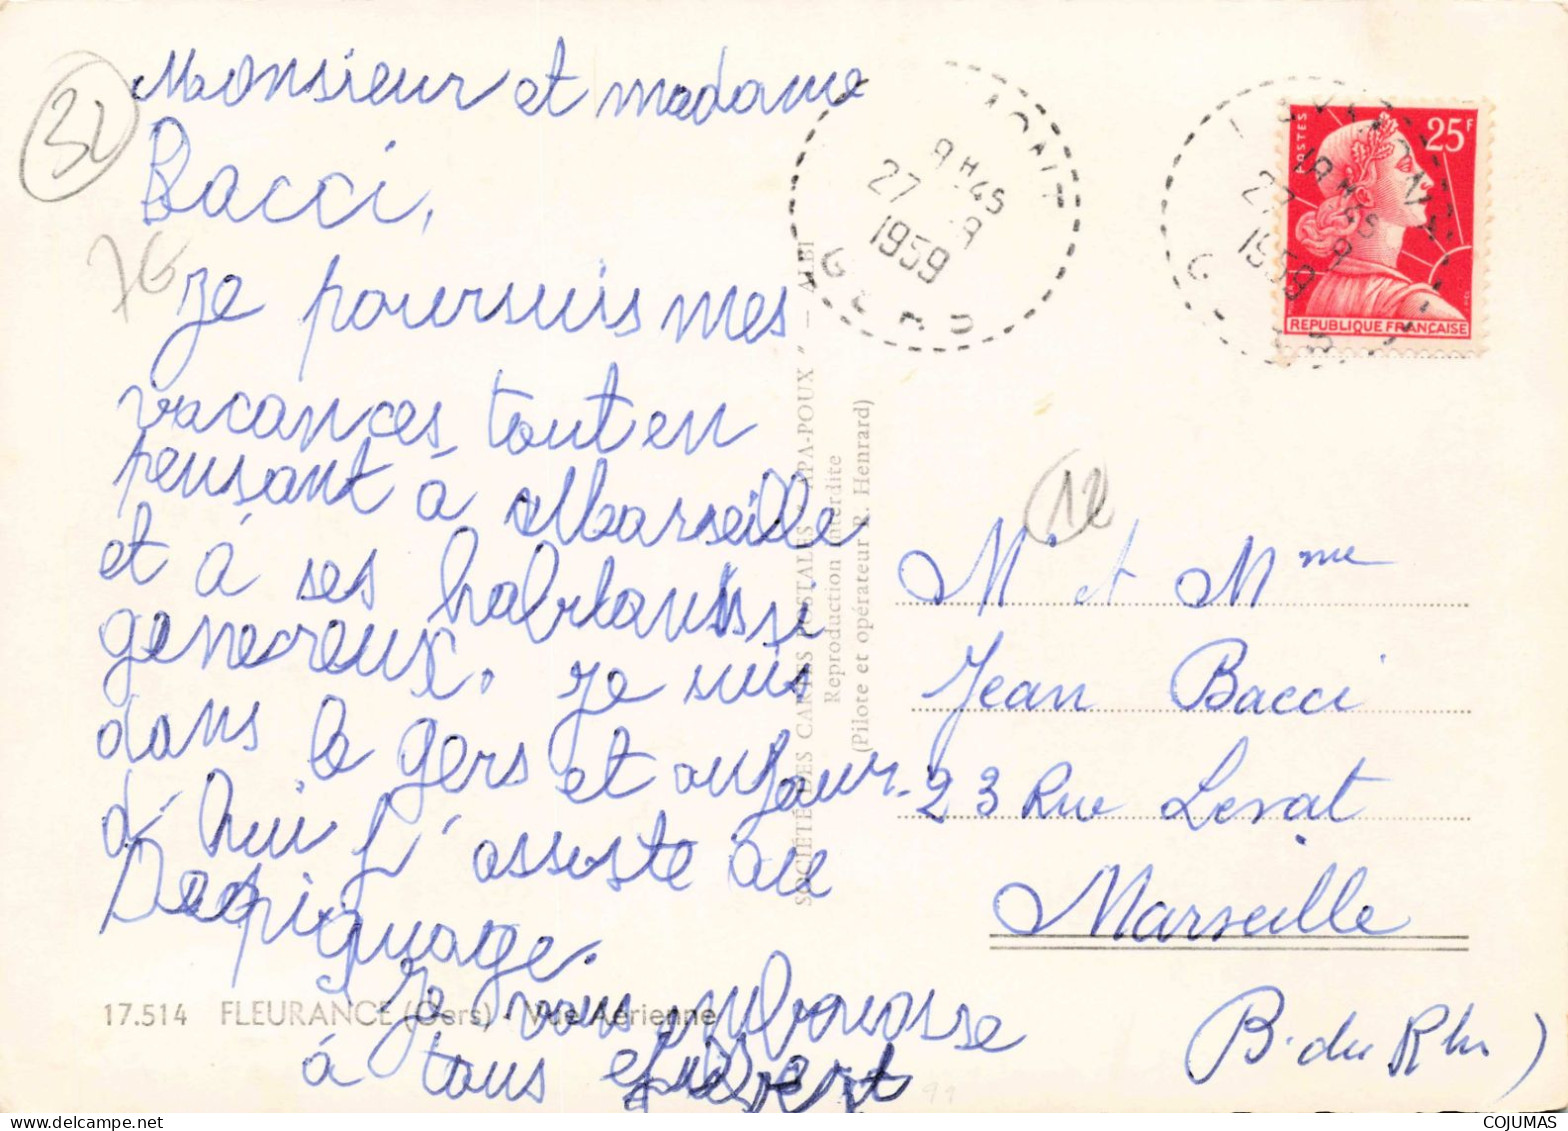 32
Monsieur et madame
Bacci,
76
Je poursuis mes
vacances tout en
pensant à Marseille
et à ses habitants si
genereux. Je suis
dans le gers et aujour-
d'hui j'assiste au
Depiquage.
Je vous
à tous
17.514 FLEURANCE (Gers) - Vue Aérienne
SOCIÉTÉ DES CARTES POSTALES "APA-POUX" — ALBI
Reproduction interdite
(Pilote et opérateur R. Henrard)
9 H45
27 - 9
1959
GERS
18 H45
27 9
1959
POSTES
25F
REPUBLIQUE FRANÇAISE
12
Mr et Mme
Jean Bacci
23 Rue Levat
Marseille
(B. du Rh.)
COJUMAS